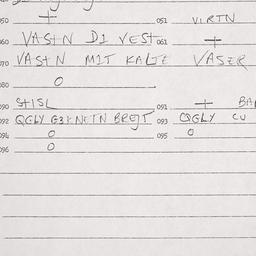 050 + 051 VIRTN
060 VASTN DI VEST 061 +
070 VASTN MIT KALTE VASER
080 O
090 STISL 091 + BA
092 QGLY G3KNETN BROJT 093 QGLY CU
094 O 095 O
096 O